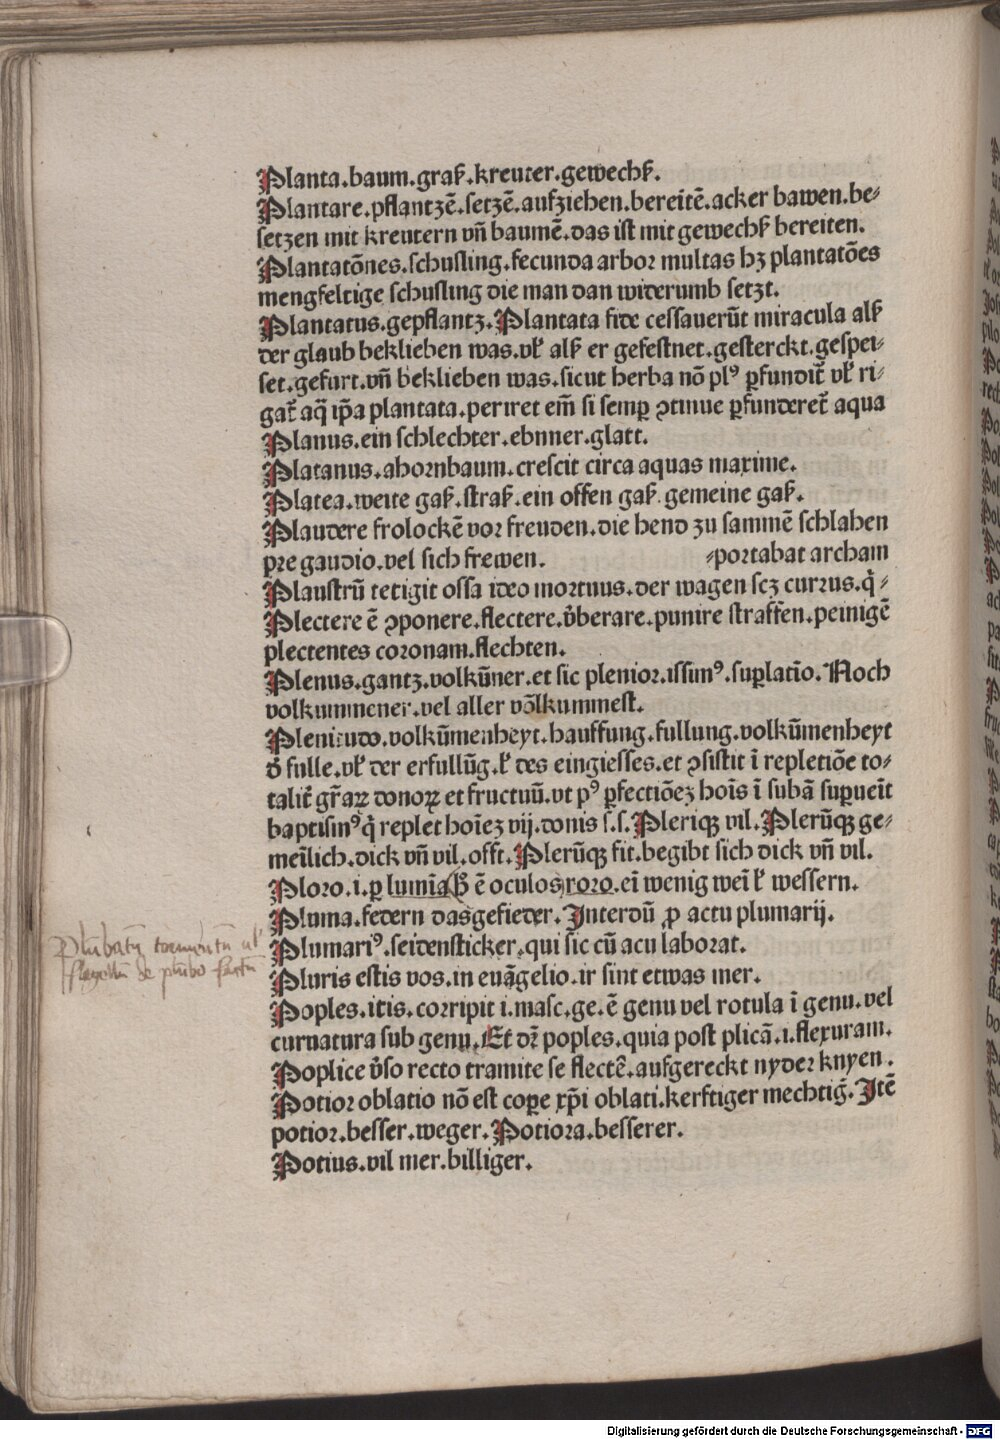 Planta.baum.graſz.kreuter.gewechſz.
Plantare.pflantzē.ſetzē.aufziehen.bereitē.acker bawen.be⸗
ſetzen mit kreutern vñ baumē.das iſt mit gewechſz bereiten.
Plantatōnes.ſchuſling.fecunda arbor multas hꝫ plantatōes
mengfeltige ſchuſling die man dan widerumb ſetzt.
Plantatus.gepflantz.Plantata fide ceſſauerūt miracula alſz
der glaub beklieben was.vel alſz er gefeſtnet.geſterckt.geſpei⸗
ſet.gefurt.vñ beklieben was.ſicut herba nō plꝰ ꝑfundit᷑ vel ri⸗
gat᷑ aq̃ ip̄a plantata.periret em̄ ſi ſemꝑ ꝯtinue ꝑfunderet᷑ aqua
Planus.ein ſchlechter.ebnner.glatt.
Platanus.ahornbaum.creſcit circa aquas maxime.
Platea.weite gaſz.ſtraſz.ein offen gaſz.gemeine gaſz.
Plaudere frolockē vor freuden.die hend zu ſammē ſchlahen
pre gaudio.vel ſich frewen. ⸗portabat archam
Plauſtrū tetigit oſſa ideo mortuus.der wagen ſcꝫ currus.q̇ ⸗
Plectere ē ꝯponere.flectere.v̓berare.punire ſtraffen.peinigē
plectentes coronam.flechten.
Plenus.gantz.volkūner.et ſic plenior.iſſimꝰ.ſuꝑlatīo.Noch
volkummener.vel aller vōlkummeſt.
Plenitudo.volkūmenheyt.hauffung.fullung.volkūmenheyt
d̓ fulle.vel der erfullūg.vel des eingieſſes.et ꝯſiſtit ī repletiōe to⸗
talit᷑ gr̄aꝝ donoꝝ et fructuū.vt pꝰ ꝑfectiōeꝫ hoīs ī ſubā ſuꝑueīt
baptiſmꝰ q̇ replet hoīeꝫ vij.donis ſ.ſ.Pleriqꝫ vil.Plerūqꝫ ge⸗
meīlich.dick vñ vil.offt.Plerūqꝫ fit.begibt ſich dick vñ vil.
Ploro.i.ꝑ lumīa ē oculos roro.ei wenig weī vel weſſern.
Pluma.federn dasgefieder.Interdū ꝓ actu plumarij.
Plumariꝰ.ſeidenſticker.qui ſic cū acu laborat.
Pluris eſtis vos.in euāgelio.ir ſint etwas mer.
Poples.itis.corripit i.maſc.ge.ē genu vel rotula ī genu.vel
curuatura ſub genu.Et dꝛ̄ poples.quia poſt plicā.i.flexuram.
Poplice v̓ſo recto tramite ſe flectē.aufgereckt nyder knyen.
Potior oblatio nō eſt cope xp̄i oblati.kerftiger mechtig̃.Itē
potior.beſſer.weger.Potiora.beſſerer.
Potius.vil mer.billiger.
Plūbatū tormentū vel
flagellū de plūbo factū
Digitalisierung gefördert durch die Deutsche Forschungsgemeinschaft - DFG